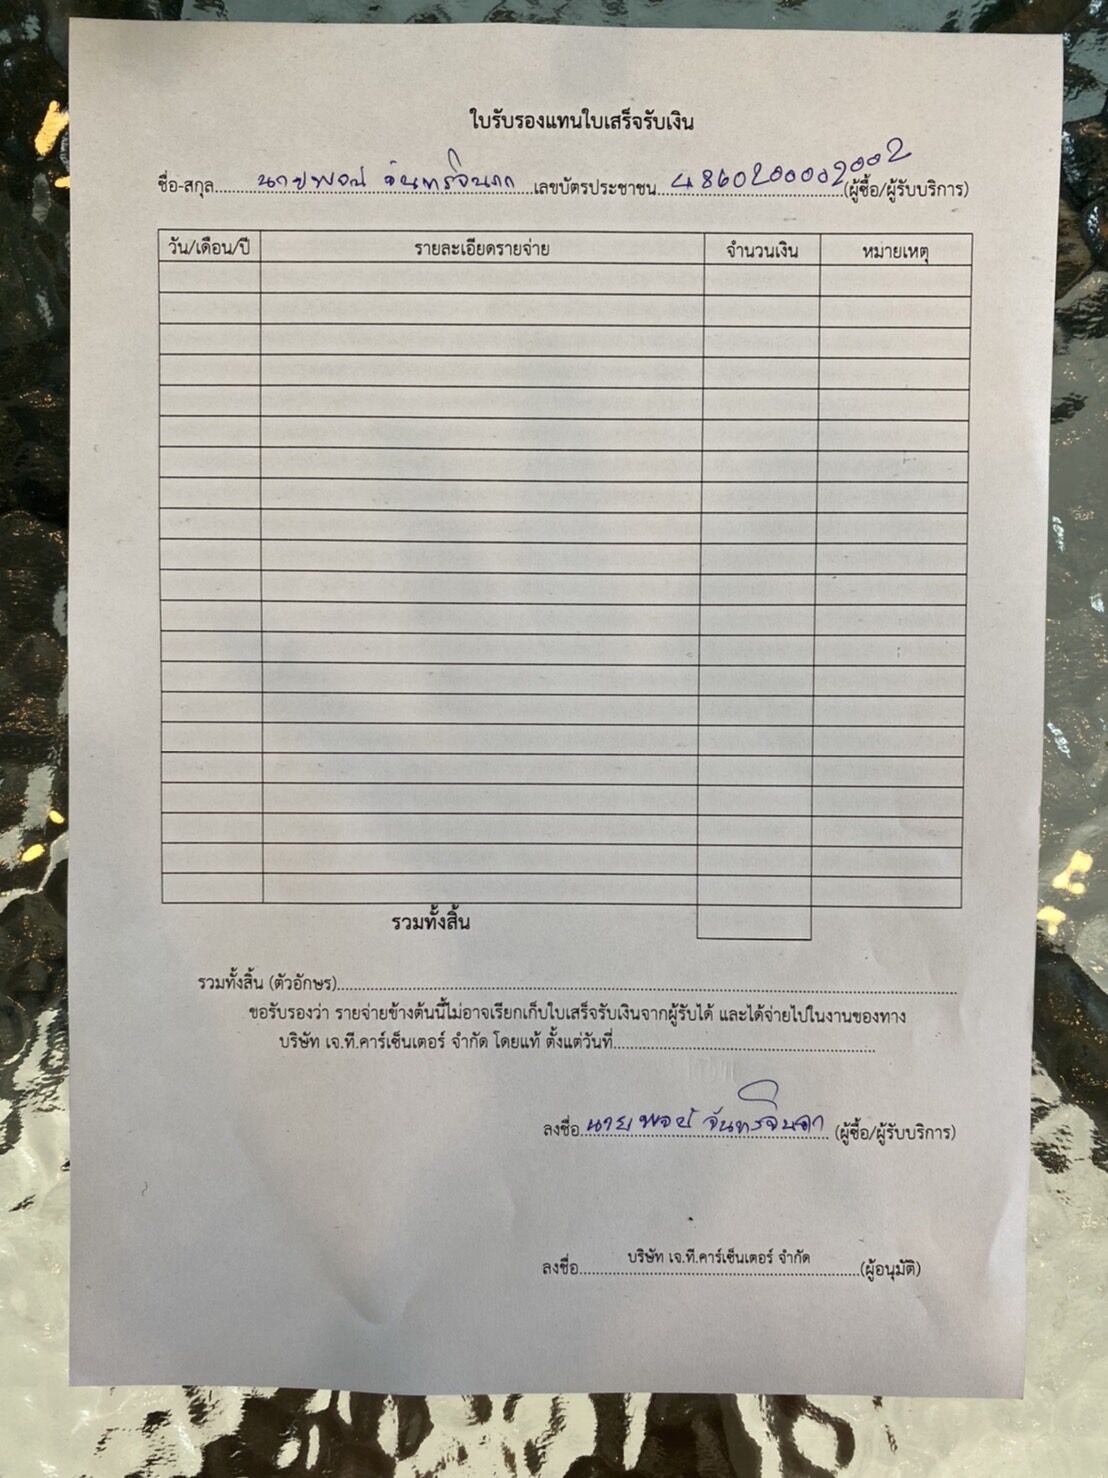 ใบรับรองแทนใบเสร็จรับเงิน
ชื่อ-สกุล นายพจน์ จันทร์จินดา เลขบัตรประชาชน (ผู้ซื้อ/ผู้รับบริการ)
วัน/เดือน/ปี รายละเอียดรายจ่าย จำนวนเงิน หมายเหตุ
รวมทั้งสิ้น
รวมทั้งสิ้น (ตัวอักษร)
ขอรับรองว่า รายจ่ายข้างต้นนี้ไม่อาจเรียกเก็บใบเสร็จรับเงินจากผู้รับได้ และได้จ่ายไปในงานของทาง
บริษัท เจ.ที.คาร์เซ็นเตอร์ จำกัด โดยแท้ ตั้งแต่วันที่
ลงชื่อ นายพจน์ จันทร์จินดา (ผู้ซื้อ/ผู้รับบริการ)
ลงชื่อ บริษัท เจ.ที.คาร์เซ็นเตอร์ จำกัด (ผู้อนุมัติ)